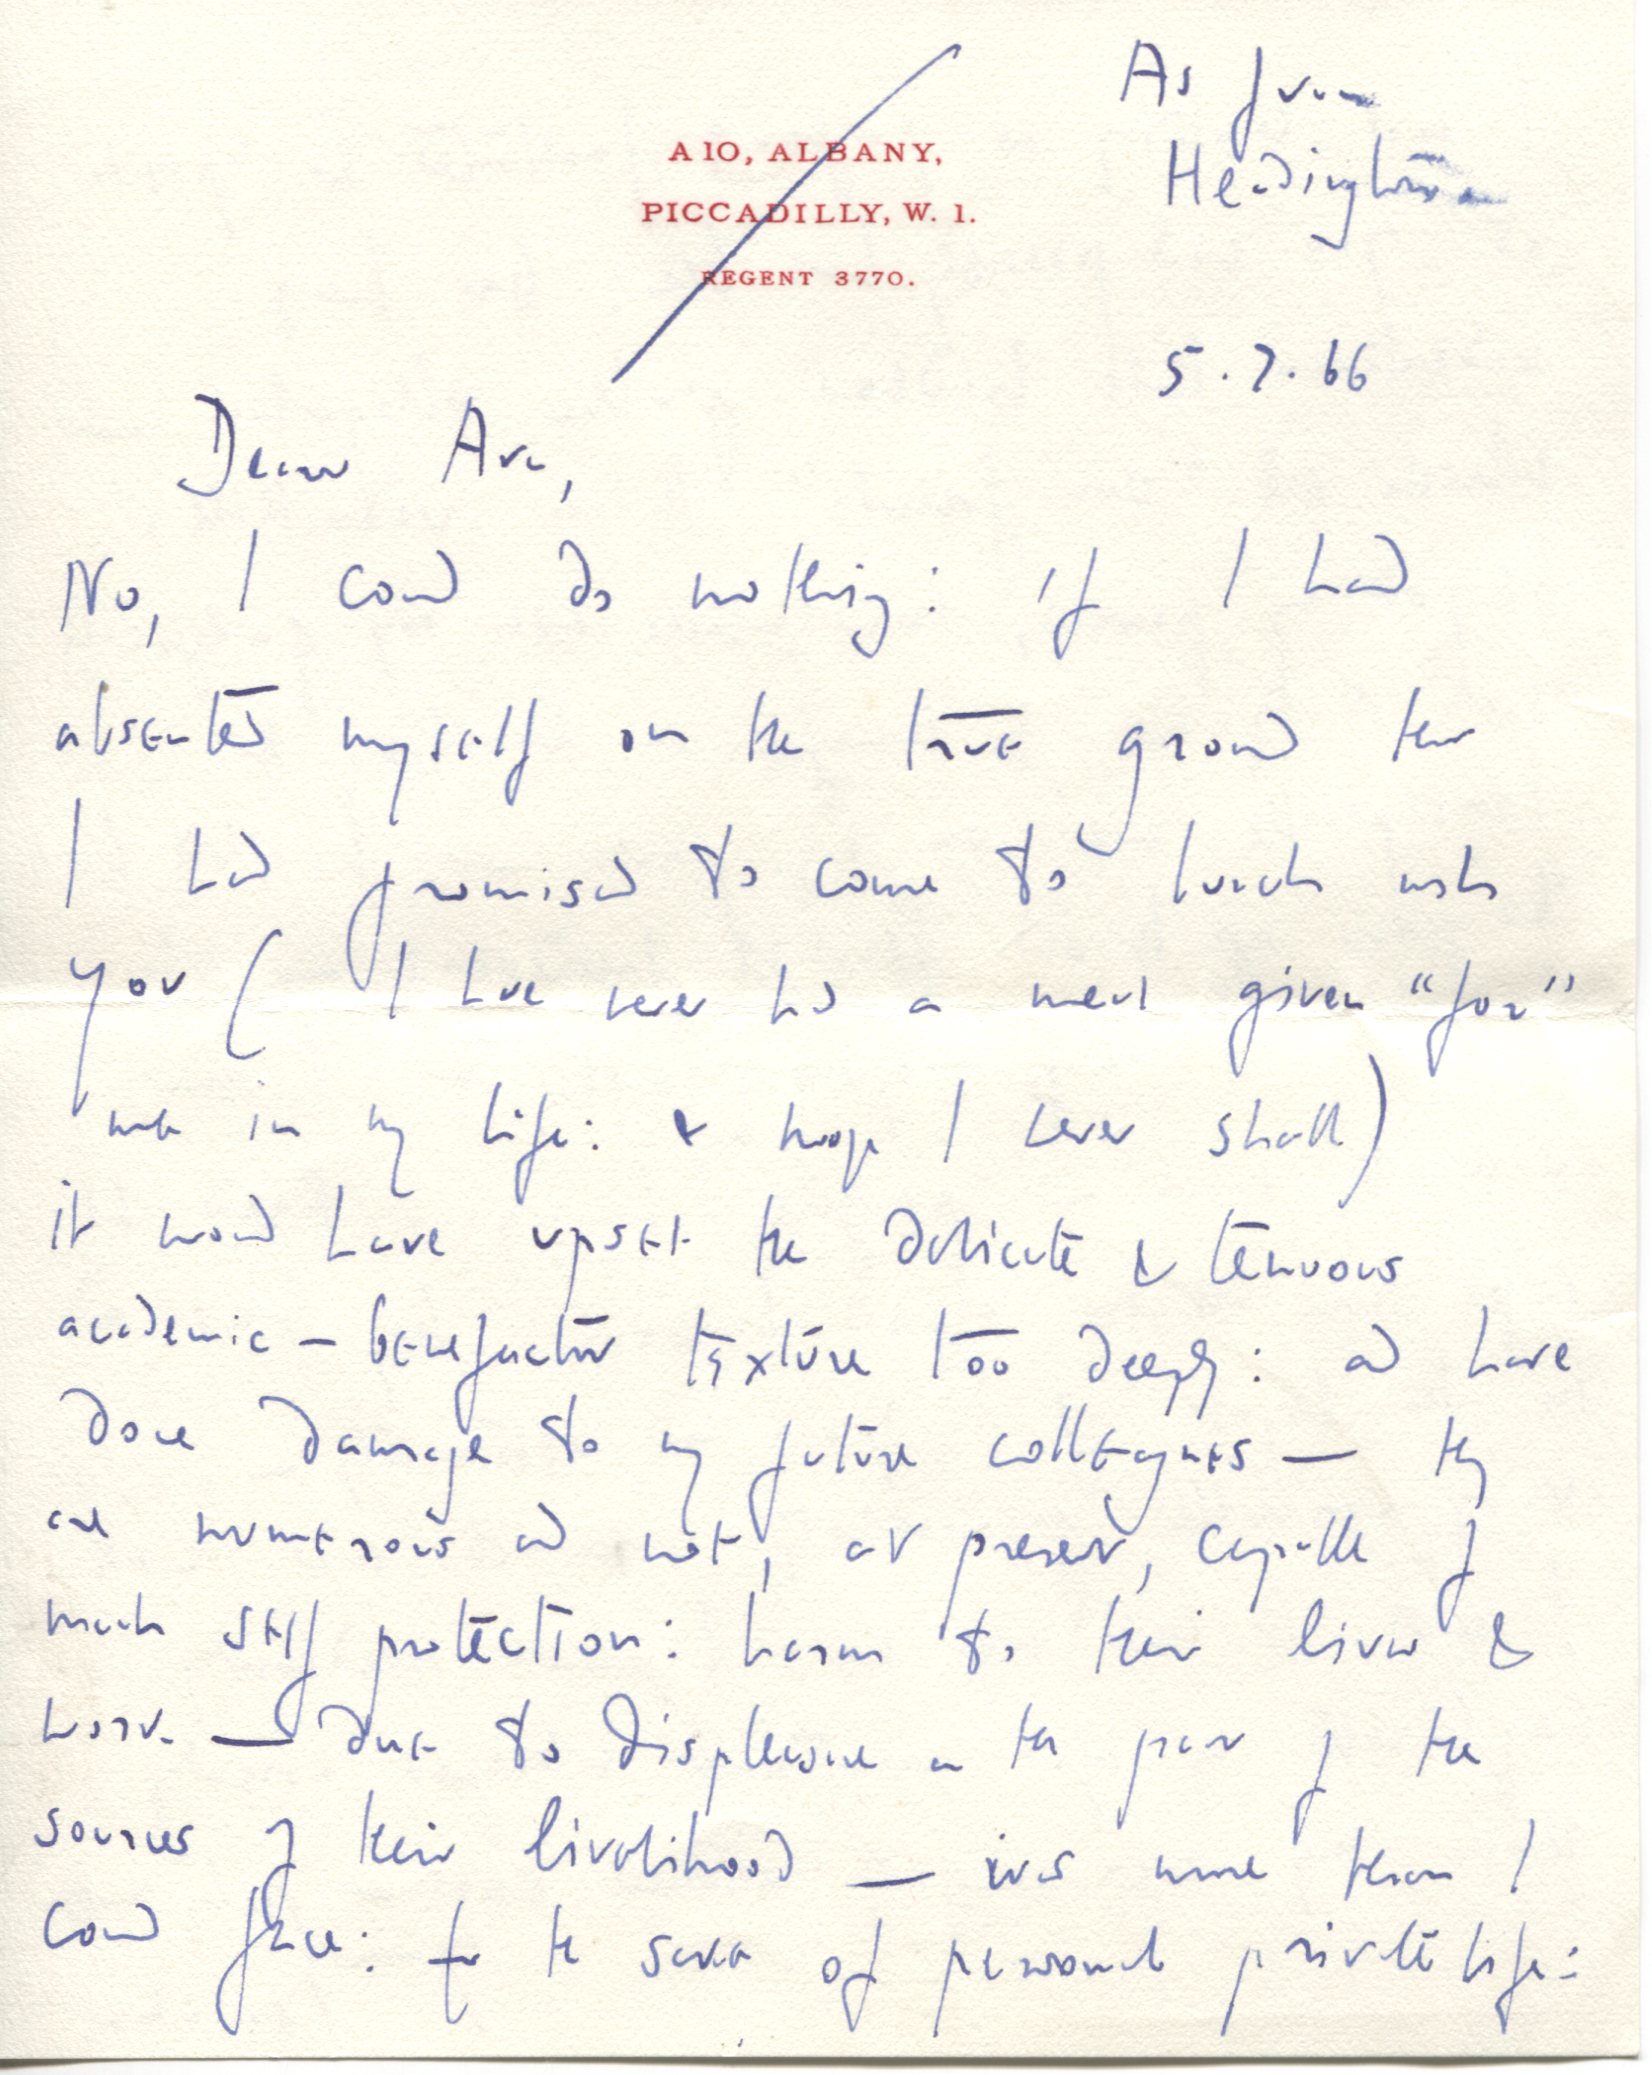 As from
Headington
A 10, ALBANY,
PICCADILLY, W. 1.
REGENT 3770.
5.7.66
Dear Ava,
No, I could do nothing: if I had
absented myself on the true ground that
I had promised to come to lunch with
you (I have never had a meal given "for"
me in my life: & hope I never shall)
it would have upset the delicate & tenuous
academic – benefactor texture too deeply: and have
done damage to my future colleagues — they
are numerous and not, at present, capable of
much self protection: harm to their lives &
work — due to displeasure on the part of the
sources of their livelihood — was more than I
could face: for the sake of personal private life: